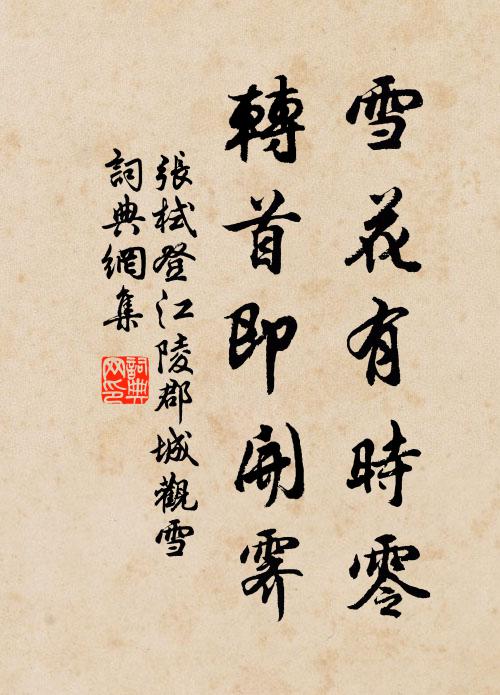 雪花有時零
轉首即開霽
張栻登江陵郡城觀雪
詞典網集
詞典網印